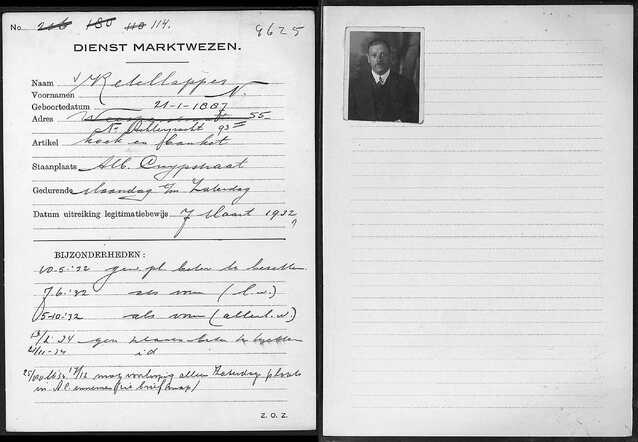 No. 216 180 110 114.
8625
DIENST MARKTWEZEN.
Naam Ketellapper
Voornamen N.
Geboortedatum 21-1-1887
Adres 55
Nw Achtergracht 93 II
Artikel koek en banket
Staanplaats Alb. Cuypstraat
Gedurende Maandag t/m Zaterdag
Datum uitreiking legitimatiebewijs 7 Maart 1932
BIJZONDERHEDEN:
10-5-'32 geen pl. beter te bezetten
7-6-'32 als voren (l.w.)
5-10-'32 als voren (allert.w.)
13/2-'34 geen plaats beter te bezetten
2/11-34 id
17/12 mag voorloopig alleen Zaterdag plaats
in A.C. innemen (zie brief map)
Z.O.Z.